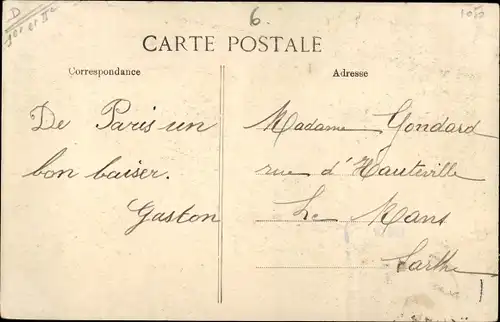 6.
D
1er et IIe
CARTE POSTALE
Correspondance
Adresse
De Paris un
bon baiser.
Gaston
Madame Gondard
rue d'Hauteville
Le Mans
Sarthe